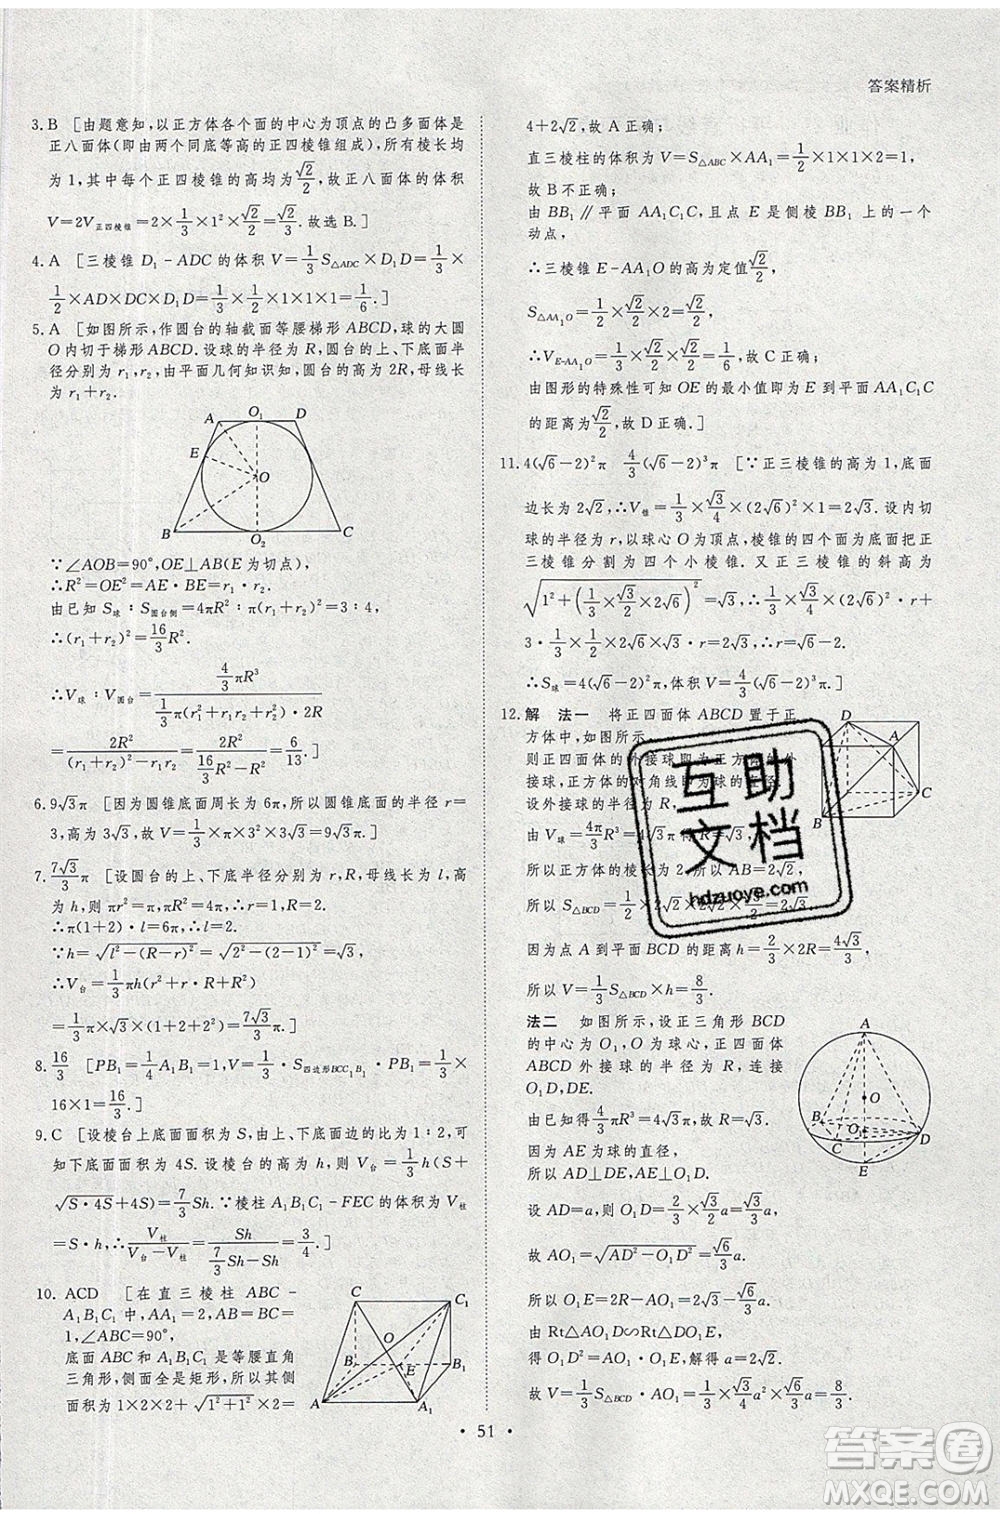 答案精析
3.B [由题意知,以正方体各个面的中心为顶点的凸多面体是
正八面体(即由两个同底等高的正四棱锥组成),所有棱长均
为1,其中每个正四棱锥的高均为√2/2,故正八面体的体积
V=2V正四棱锥=2×1/3×1²×√2/2=√2/3.故选B.]
4.A [三棱锥D₁-ADC的体积V=1/3S△ADC×D₁D=1/3×
1/2×AD×DC×D₁D=1/3×1/2×1×1×1=1/6.]
5.A [如图所示,作圆台的轴截面等腰梯形ABCD,球的大圆
O内切于梯形ABCD.设球的半径为R,圆台的上、下底面半
径分别为r₁,r₂.由平面几何知识知,圆台的高为2R,母线长
为r₁+r₂.
A O₁ D
E
O
B O₂ C
∵∠AOB=90°,OE⊥AB(E为切点),
∴R²=OE²=AE·BE=r₁·r₂.
由已知S球∶S圆台侧=4πR²∶π(r₁+r₂)²=3∶4,
∴(r₁+r₂)²=16/3R².
∴V球∶V圆台=(4/3πR³)/(1/3π(r₁²+r₁r₂+r₂²)·2R)
=2R²/((r₁+r₂)²-r₁r₂)=2R²/(16/3R²-R²)=6/13.]
6.9√3π [因为圆锥底面周长为6π,所以圆锥底面的半径r=
3,高为3√3,所以V=1/3×π×3²×3√3=9√3π.]
7.7√3/3π [设圆台的上、下底面半径分别为r,R,母线长为l,高
为h,则πr²=π,πR²=4π.∴r=1,R=2.
∴π(1+2)·l=6π,∴l=2.
∵h=√(l²-(R-r)²)=√(2²-(2-1)²)=√3.
∴V台=1/3πh(r²+r·R+R²)
=1/3π×√3×(1+2+2²)=7√3/3π.]
8.16/3 [PB₁=1/4A₁B₁=1,V=1/3·S四边形BCC₁B₁·PB₁=1/3×
16×1=16/3.]
9.C [设棱台上底面面积为S,由上、下底面边的比为1∶2,可
知下底面面积为4S.设棱台的高为h,则V台=1/3(S+
√(S·4S)+4S)=7/3Sh.∵棱柱A₁B₁C₁-FEC的体积为V柱
=S·h,∴V柱/(V台-V柱)=Sh/(7/3Sh-Sh)=3/4.]
10. ACD [在直三棱柱ABC-
A₁B₁C₁中,AA₁=2,AB=BC=
1,∠ABC=90°,
底面ABC和A₁B₁C₁是等腰直角
三角形,侧面全是矩形,所以其侧
面积为1×2×2+√(1²+1²)×2=
C C₁
O
B E B₁
A A₁
4+2√2,故A正确;
直三棱柱的体积为V=S△ABC×AA₁=1/2×1×1×2=1,
故B不正确;
由BB₁∥平面AA₁C₁C,且点E是侧棱BB₁上的一个
动点,
∴三棱锥E-AA₁O的高为定值√2/2,
S△AA₁O=1/2×√2/2×2=√2/2,
∴V E-AA₁O=1/3×√2/2×√2/2=1/6,故C正确;
由图形的特殊性可知OE的最小值即为E到平面AA₁C₁C
的距离为√2/2,故D正确.]
11.4(√6-2)²π 4/3(√6-2)³π [∵正三棱锥的高为1,底面
边长为2√6,∴V锥=1/3×√3/4×(2√6)²×1=2√3.设内切
球的半径为r,以球心O为顶点,棱锥的四个面为底面把正
三棱锥分割为四个小棱锥.又正三棱锥的斜高为
√(1²+(1/3×√3/2×2√6)²)=√3,∴1/3×√3/4×(2√6)²·r+
3·1/3×1/2×2√6×√3·r=2√3,∴r=√6-2.
∴S球=4(√6-2)²π,V球=4/3(√6-2)³π.]
12.解 法一 将正四面体ABCD置于正
方体中,如图所示,
则正四面体的外接球即为正方体的外
接球,正方体的对角线即为球的直径,
设外接球的半径为R,
由V球=4π/3R³=4√3π,得R=√3,
所以正方体的棱长为2,所以AB=2√2,
所以S△BCD=
因为点A到平面BCD的距离h=2/3×2R=4√3/3,
所以V=1/3S△BCD×h=8/3.
D
A
C
B
法二 如图所示,设正三角形BCD
的中心为O₁,O为球心,正四面体
ABCD外接球的半径为R,连接
O₁D,DE.
由已知得4/3πR³=4√3π,故R=√3,
因为AE为球的直径,
所以AD⊥DE,AE⊥O₁D.
设AD=a,所以O₁D=2/3×√3/2a=√3/3a,
故AO₁=√(AD²-O₁D²)=√6/3a.
所以O₁E=2R-AO₁=2√3-√6/3a,
由Rt△AO₁D∽Rt△DO₁E,
得O₁D²=AO₁·O₁E,解得a=2√2.
故V=1/3S△BCD·AO₁=1/3×√3/4a²×√6/3a=8/3.
A
O
B
O₁
C
D
E
互助
文档
hdzuoye.com
• 51 •
答案圈
MXQE.COM